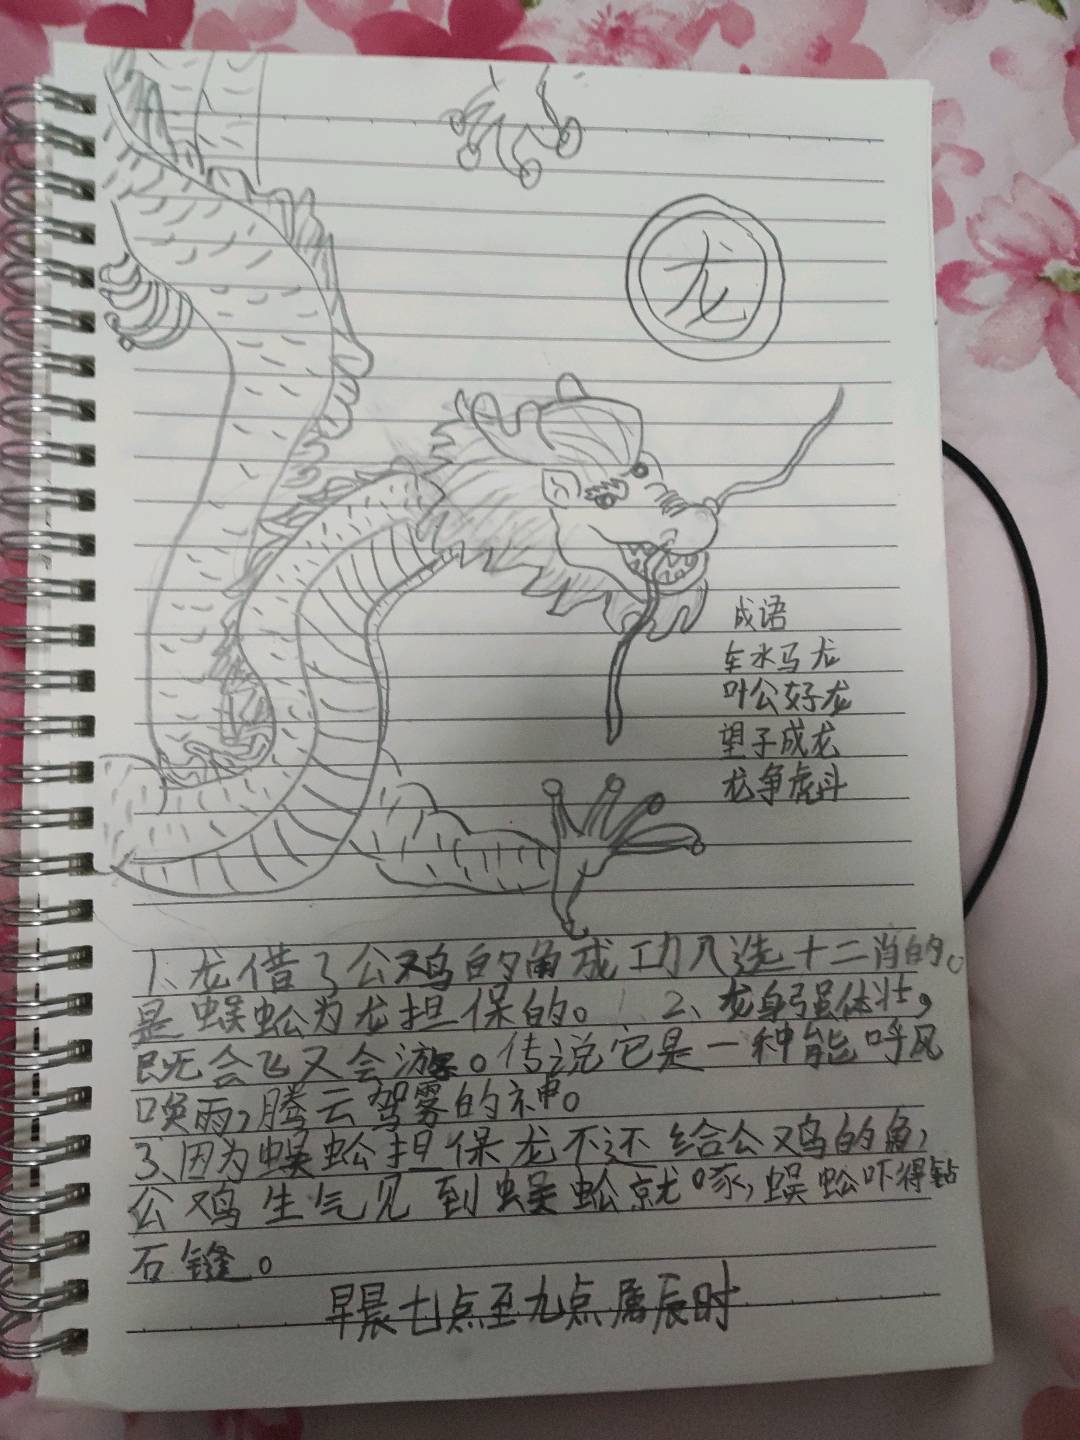 龙
成语
车水马龙
叶公好龙
望子成龙
龙争虎斗
1、龙借了公鸡的角成功入选十二肖的。
是蜈蚣为龙担保的。 2、龙身强体壮，
既会飞又会游。传说它是一种能呼风
唤雨，腾云驾雾的神。
3、因为蜈蚣担保龙不还给公鸡的角，
公鸡生气见到蜈蚣就啄，蜈蚣吓得钻
石缝。
早晨七点至九点属辰时